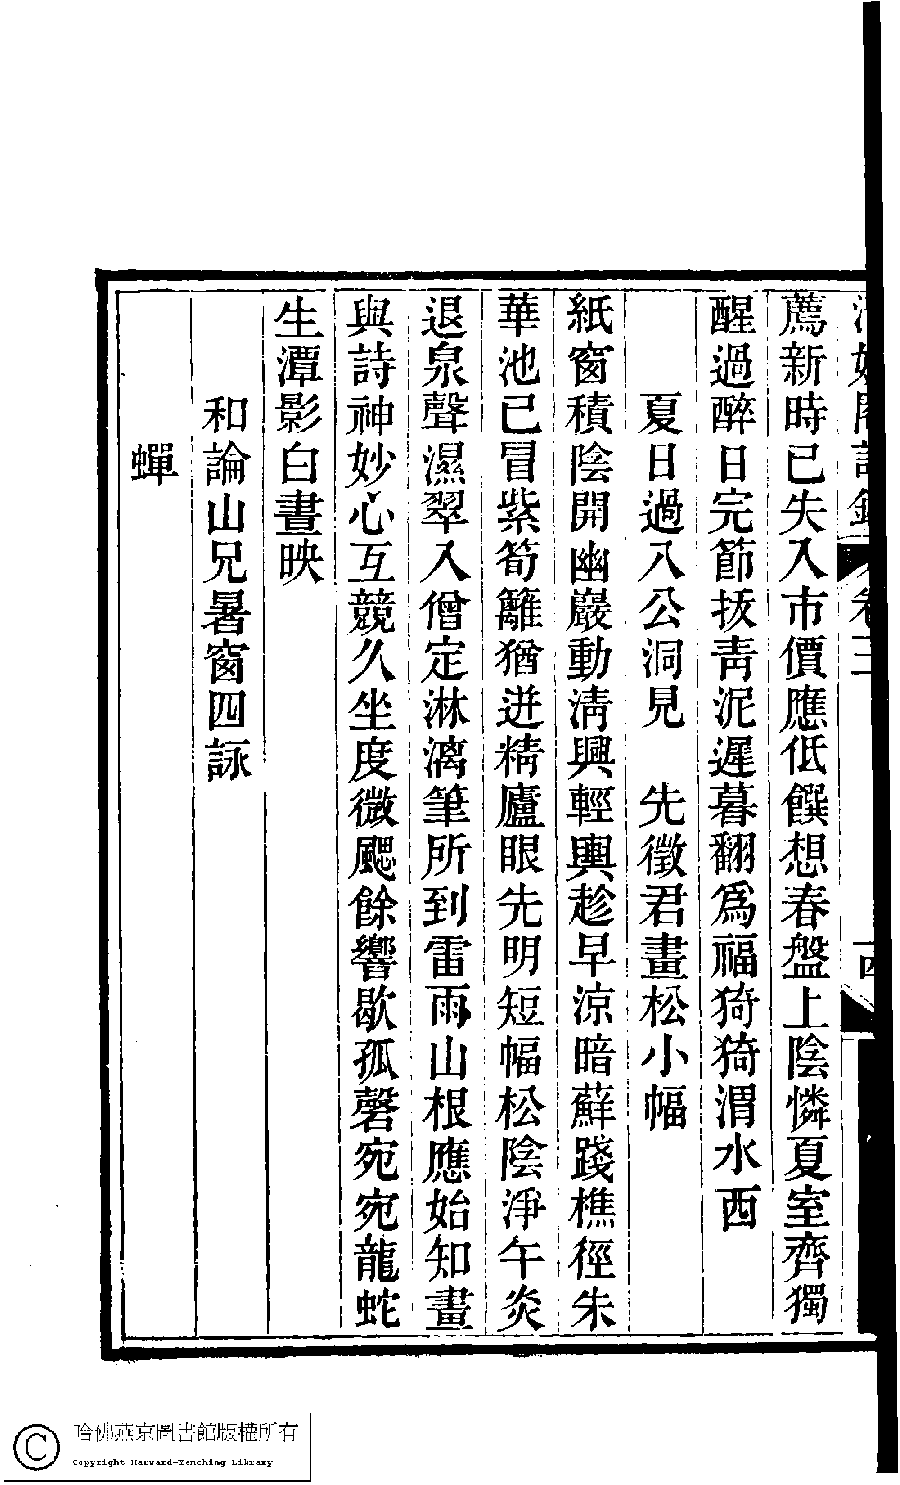 卷三
薦新時已失入市價應低饌想春盤上陰憐夏室齊獨
醒過醉日完節拔靑泥遲暮翻爲福猗猗渭水西
夏日過八公洞見　先徵君畫松小幅
紙窗積陰開幽巖動淸興輕輿趁早涼暗蘇踐樵徑朱
華池已冒紫筍籬猶迸精廬眼先明短幅松陰淨午炎
退泉聲濕翠入僧定淋漓筆所到雷雨山根應始知畫
與詩神妙心互競久坐度微颸餘響歇孤磬宛宛龍蛇
生潭影白晝映
和論山兄暑窗四詠
蟬
哈佛燕京圖書館版權所有
Copyright Harvard-Yenching Library